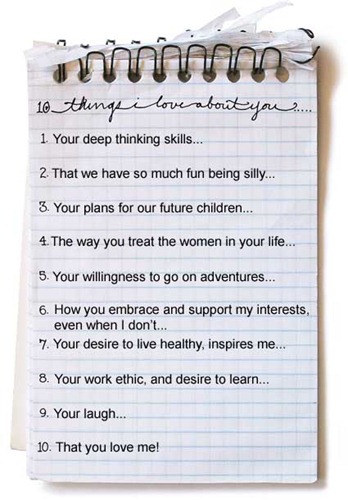 10 things i love about you.....
1. Your deep thinking skills...
2. That we have so much fun being silly...
3. Your plans for our future children...
4. The way you treat the women in your life...
5. Your willingness to go on adventures...
6. How you embrace and support my interests,
even when I don't...
7. Your desire to live healthy, inspires me...
8. Your work ethic, and desire to learn...
9. Your laugh...
10. That you love me!